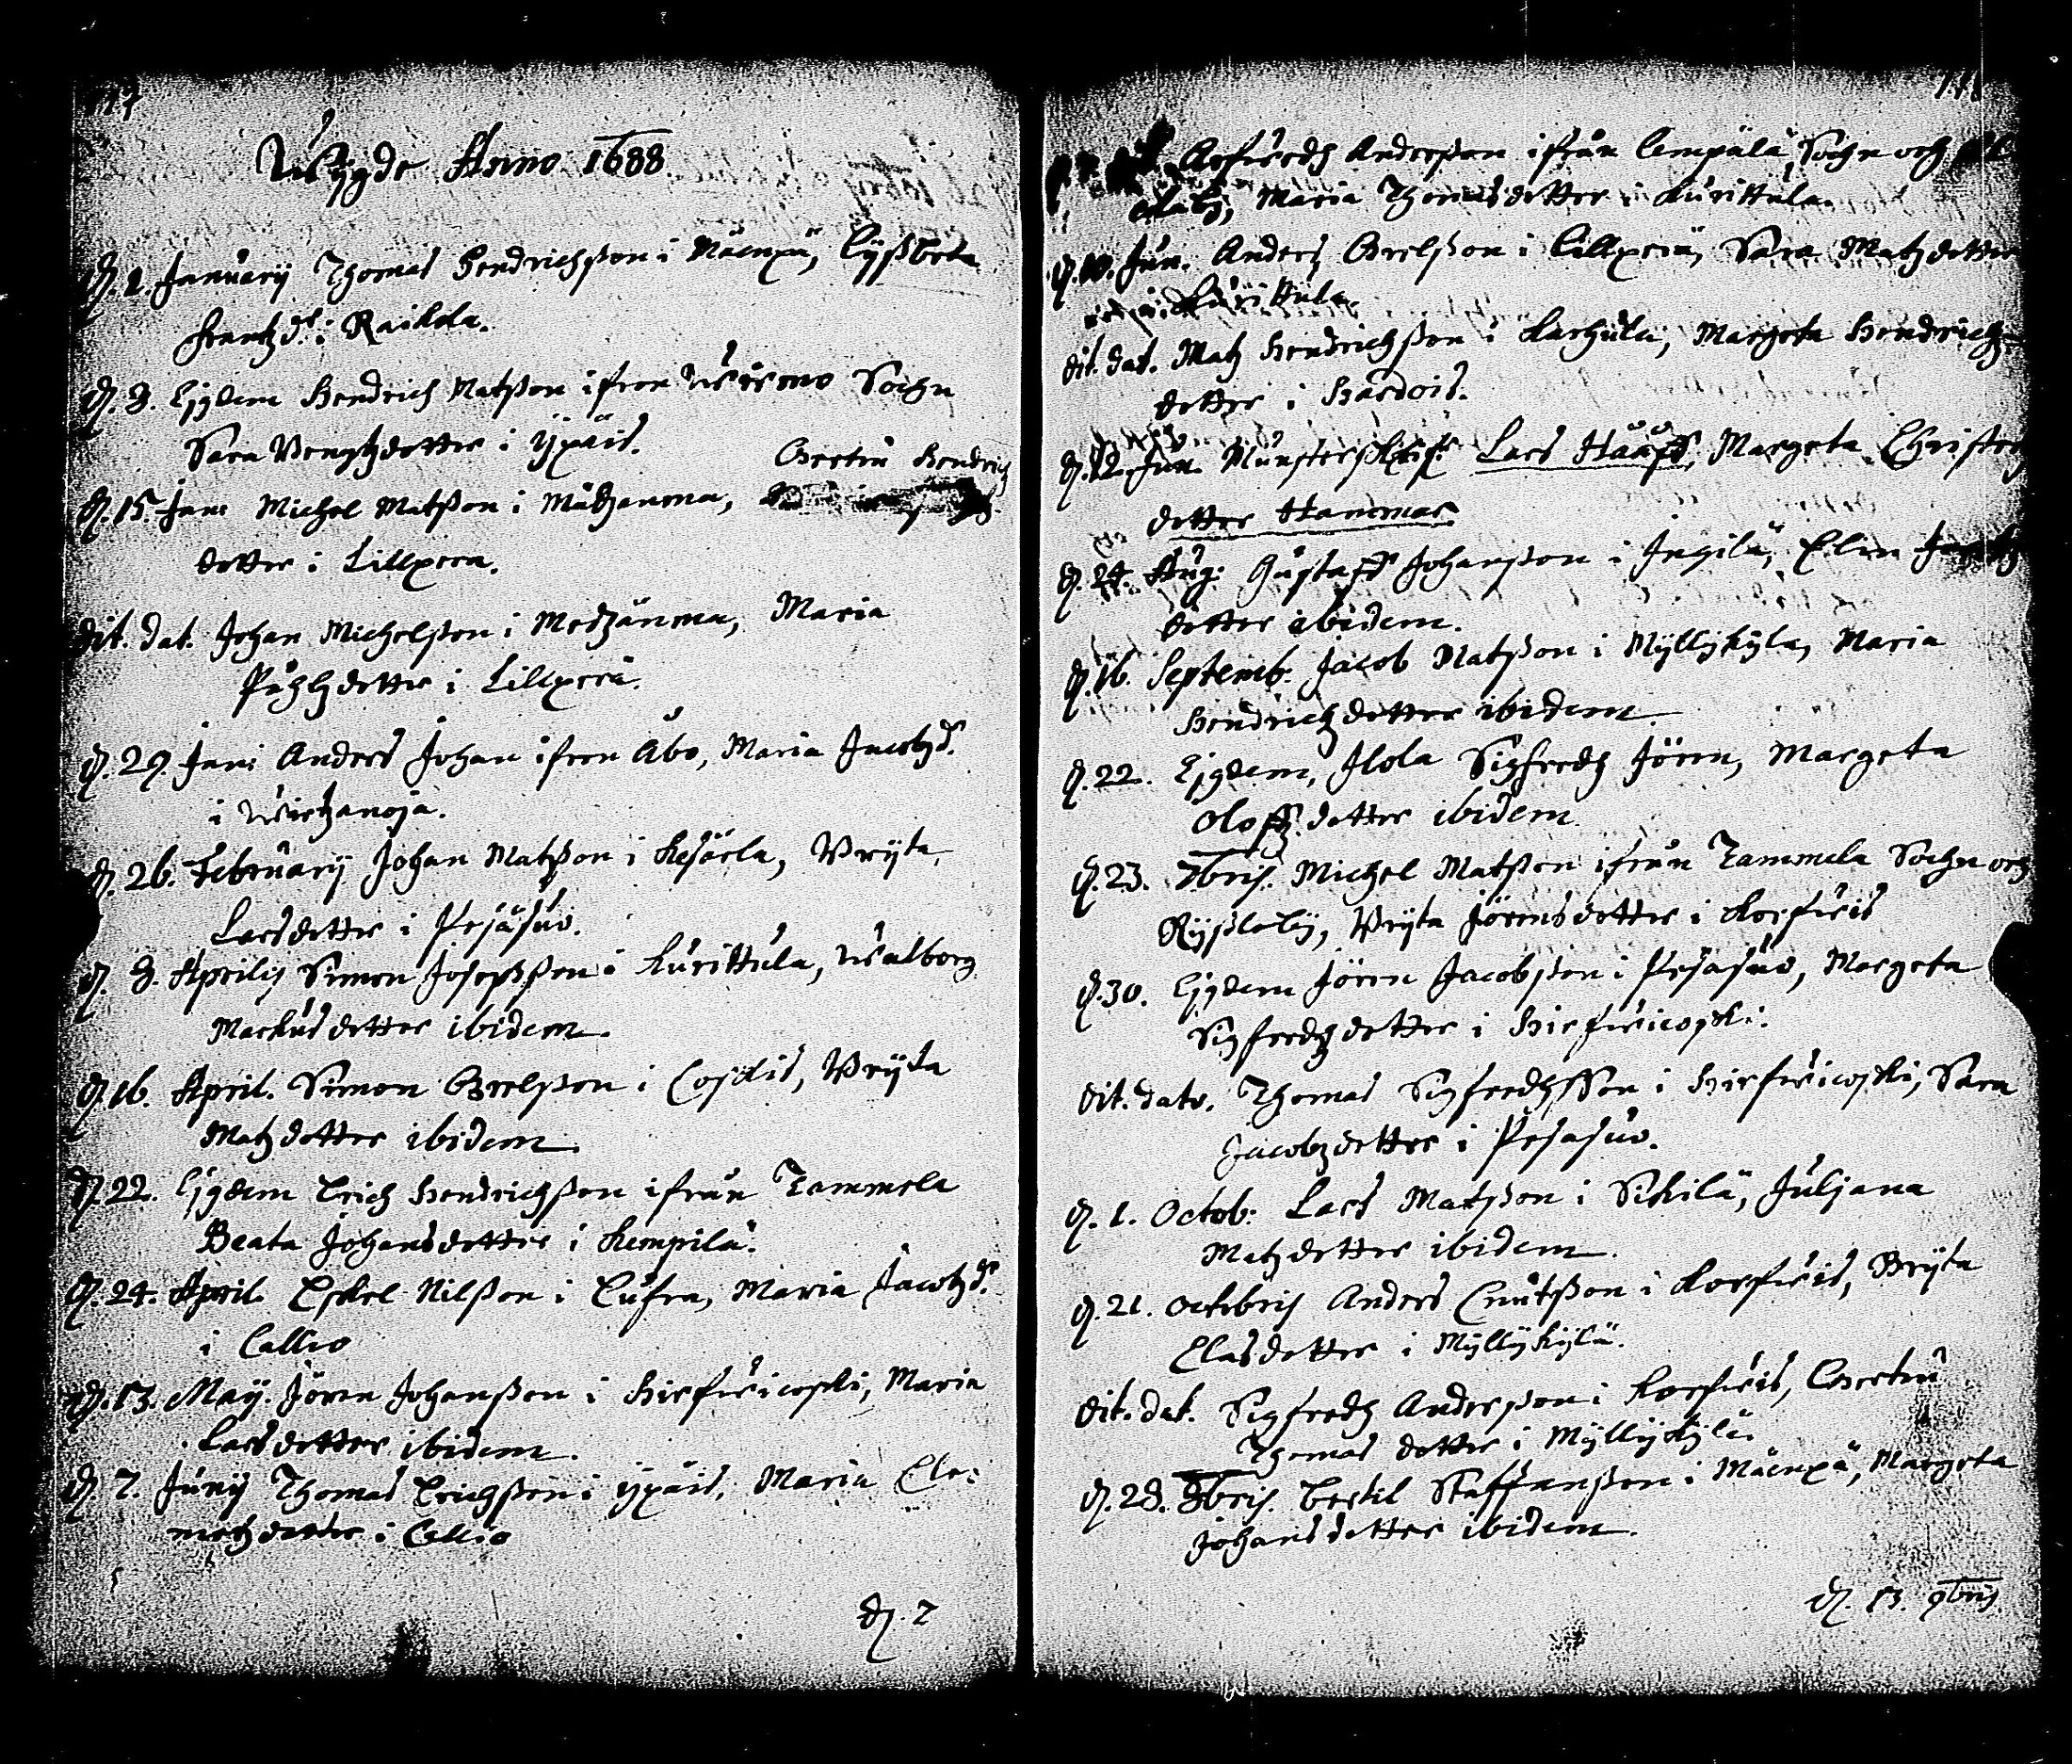 117
Wigde Anno 1688.
d. 1. Januarij Thomas Hendrichsson i Mäenpä, Lijsbeta
Frantzdr i Raikola.
d. 8. Ejusdem Hendrich Matsson ifrån Wirmo Sochn
Sara Bengtzdotter i Ypäis.
Gertru Hendrich
d. 15. Jan: Michel Matsson i Mädzänma,
dotter i Lillperä.
dit. dat. Johan Michelsson i Medzänma, Maria
Påhlsdotter i Lillperä.
d. 29. Jani Anders Johan ifrån Åbo, Maria Jacobzdr
i Wirtzanoja.
d. 26. Februarij Johan Matsson i Kesärla, Bryta
Larsdotter i Pesäsuo.
d. 8. Aprilis Simon Josephsson i Kurittula, Walborg
Markusdotter ibidem.
d. 16. April. Simon Grelsson i Cojdis, Bryta
Matzdotter ibidem.
d. 22. Ejusdem Erich Hendrichsson ifrån Tammela
Beata Johansdotter i Kempilä.
d. 24. April. Eskel Nilsson i Lufra, Maria Jacobzdr
i Callio
d. 13. Maij. Jören Johansson i Hirfwikoski, Maria
Larsdotter ibidem.
d. 7. Junij Thomas Erichsson i Ypäis, Maria Cle-
metzdotter i Callio
d. 7
118
Sigfredh Andersson ifrån Lempälä, Sochn och
Maria Thomasdotter i Kurittula.
d. 10. Jun. Anders Grelsson i Lillperä, Sara Matzdotter
i Kurittula.
dit. dat. Matz Hendrichsson i Karhula, Margeta Hendrichz-
dotter i Hardois.
d. 12. Jun. Munsterskrif: Lars Haaf, Margeta Christers
dotter Hammar
d. 24. Aug: Gustaff Johansson i Jngilä, Elin
dotter ibidem.
d. 16. Septemb. Jacob Matsson i Myllykylä, Maria
Hendrichzdotter ibidem.
d. 22. Ejusdem, Ilola Sigfredh Jören, Margeta
Oloffzdotter ibidem.
d. 23. 7bris. Michel Matsson ifrån Tammela Sochn och
Ryssleby, Bryta Jörensdotter i Korfwis
d. 30. Ejusdem Jören Jacobsson i Pesasuo, Margeta
Sigfredhzdotter i Hirfwikoski.
dit. dato. Thomas Sigfredhsson i Hirfwikoski, Sara
Jacobzdotter i Pesasuo.
d. 1. Octob: Lars Matsson i Sikilä, Juljana
Matzdotter ibidem.
d. 21. Octobris Anders Cnutsson i Korfwis, Bryta
Clasdotter i Myllykylä.
dit. dat. Sigfredh Andersson i Korfwis, Gertru
Thomasdotter i Myllykylä.
d. 28. 8bris. Bertil Staffansson i Mäenpä, Margeta
Johansdotter ibidem.
d. 13. 9bris